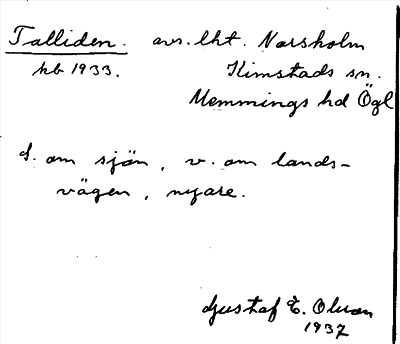 Talliden. avs. lht. Norsholm
kb 1933. Kimstads sn.
Memmings hd Ögl
S. om sjön, v. om lands-
vägen, nyare.
Gustaf E. Olsson
1937